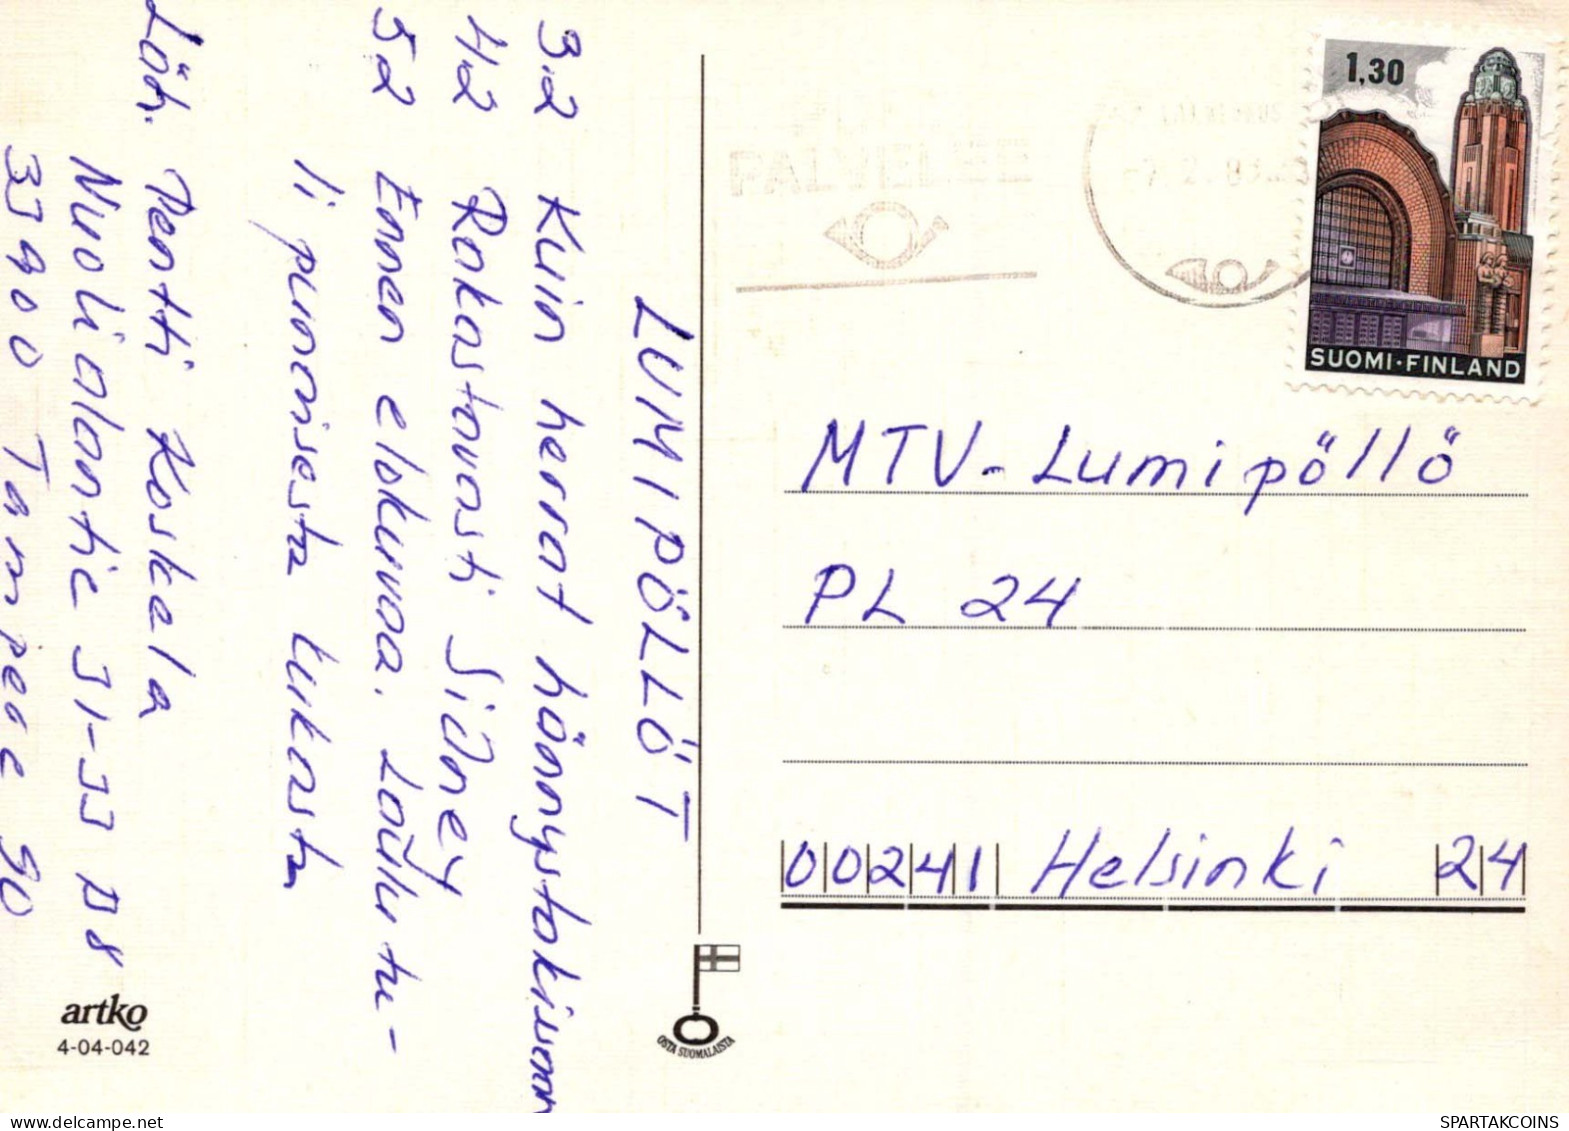 LUMIPÖLLÖT
3.2 Kuin herrat hönnystakisonn
4.2 Rakastavasti Sidney
5.2 Ennen elokuvaa. Loulu tu-
li punaisesta lukasta
Löh. Pentti Koskela
Nuolialantie 31-33 D 8
33900 Tampere 90
PALVELEE
-7.2.83
1,30
SUOMI·FINLAND
MTV-Lumipöllö
PL 24
00241 Helsinki 24
OSTA SUOMALAISTA
artko
4-04-042
www.delcampe.net
SPARTAKCOINS